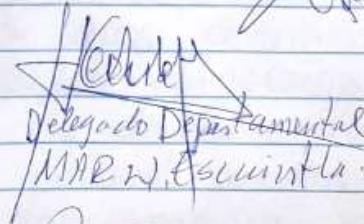 Delegado Departamental
MARN, Escuintla.